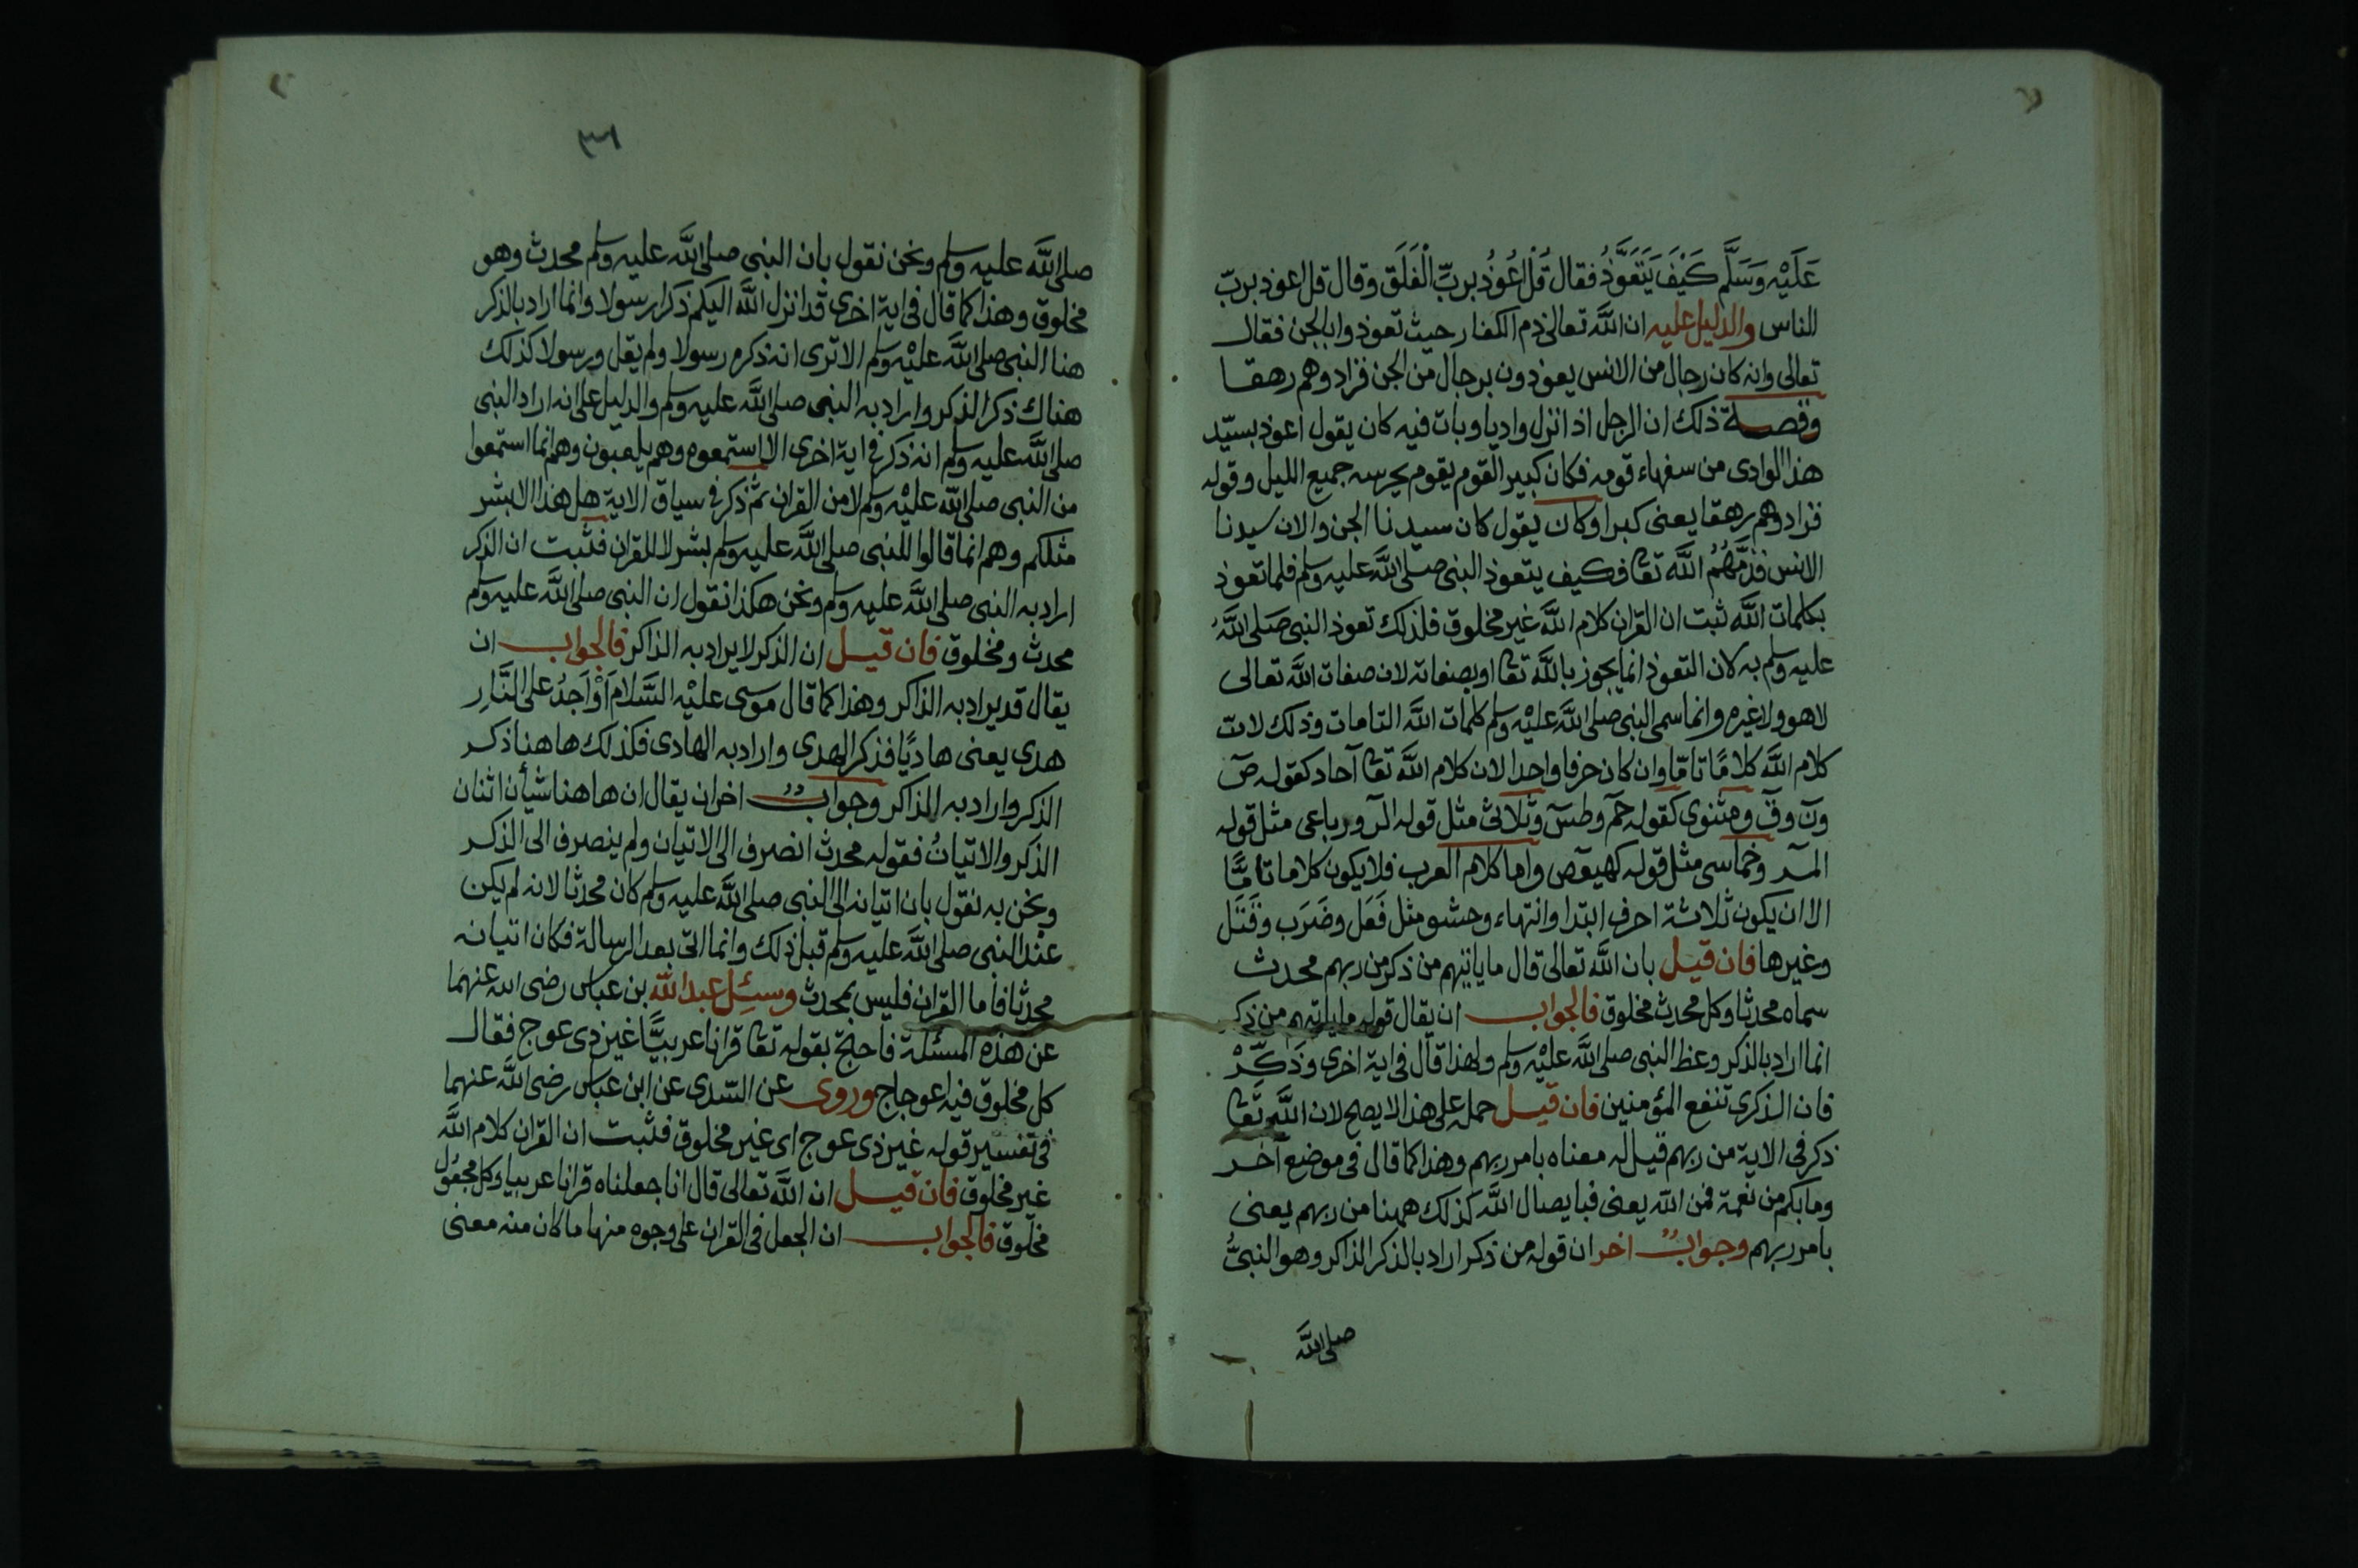 عَلَيْهِ وَسَلَّم كَيْفَ يَتَعَوَّذُ فقال قُلْ اعُوذُ بربِّ الْفَلَق وقال قل اعوذ بربّ
الناس والدليل عليه ان اللَّه تعالى ذم الكفار حيث تعوذوا بالجن فقال
تعالى وانه كان رجال من الانس يعوذون برجال من الجن فزادوهم رهقا
وقصة ذلك ان الرجل اذا نزل واديا وبات فيه كان يقول اعوذ بسيّد
هذا الوادى من سفهاء قومه فكان كبير القوم يقوم يحرسه جميع الليل وقوله
فزادوهم رهقا يعنى كبرا وكان يقول كان سيدنا الجن والان سيدنا
الانس فذمَّهُمُ اللَّه تعا فكيف يتعوذ النبى صلى اللَّه عليه وسلم فلما تعوذ
بكلمات اللَّه ثبت ان القران كلام اللَّه غير مخلوق فلذلك تعوذ النبى صلى اللَّهُ
عليه وسلم به لان التعوذ انما يجوز باللَّه تعا او بصفاته لان صفات اللَّه تعالى
لا هو ولا غيره وانما سمى النبى صلى اللَّه عليْه وسلم كلمات اللَّه التامات وذلك لان
كلام اللَّه كلامًا تامّا وان كان حرفا واحدا لان كلام اللَّه تعا آحاد كقوله صٓ
ونٓ وقٓ ومثنوى كقوله حٓم وطسٓ وثلاثى مثل قوله الٓر ورباعى مثل قوله
المٓر وخماسى مثل قوله كهيعٓص واما كلام العرب فلا يكون كلاما تامًّا
الا ان يكون ثلاثة احرف ابتدا وانتهاء وحشو مثل فَعَل وضَرَب وقَتَل
وغيرها فان قيل بان اللَّه تعالى قال ما ياتيهم من ذكر من ربهم محدث
سماه محدثا وكل محدث مخلوق فالجواب ان يقال قوله ما ياتيهم من ذكر
انما اراد بالذكر وعظ النبى صلى اللَّه عليْه وسلم ولهذا قال فى اية اخرى وذَكِّرْ
فان الذكرى تنفع المؤمنين فان قيل حمله على هذا لا يصح لان اللَّه تعا
ذكر فى الاية من ربهم قيل له معناه بامر ربهم وهذا كما قال فى موضع آخر
وما بكم من نعمة فمن اللَّه يعنى فبايصال اللَّه كذلك ههنا من ربهم يعنى
بامر ربهم وجوابٌ اخر ان قوله من ذكر اراد بالذكر الذاكر وهو النبىُّ
صلى اللَّه
٣٦
صلى اللَّه عليه وسلم ونحن نقول بان النبى صلى اللَّه عليه وسلم محدث وهو
مخلوق وهذا كما قال فى اية اخرى قد انزل اللَّه اليكم ذكرا رسولا وانما اراد بالذكر
هنا النبى صلى اللَّه عليْه وسلم الا ترى انه ذكره رسولا ولم يقل ورسولا كذلك
هناك ذكر الذكر واراد به النبى صلى اللَّه عليه وسلم والدليل على انه اراد النبى
صلى اللَّه عليه وسلم انه ذكر فى اية اخرى الا استمعوه وهم يلعبون وهم انما استمعوا
من النبى صلى اللَّه عليْه وسلم لا من القران ثمّ ذكر فى سياق الاية هل هذا الا بشر
مثلكم وهم انما قالوا للنبى صلى اللَّه عليه وسلم بشر لا للقران فثبت ان الذكر
اراد به النبى صلى اللَّه عليه وسلم ونحن هكذا نقول ان النبى صلى اللَّه عليه وسلم
محدث ومخلوق فان قيل ان الذكر لا يراد به الذاكر فالجواب ان
يقال قد يراد به الذاكر وهذا كما قال موسى عليْه السَّلام اَوْ اَجِدُ على النَّارِ
هدى يعنى هاديًا فذكر الهدى واراد به الهادى فكذلك هاهنا ذكر
الذكر واراد به الذاكر وجوابٌ اخر ان يقال ان هاهنا شيأن اثنان
الذكر والاتيانُ فقوله محدث انصرف الى الاتيان ولم ينصرف الى الذكر
ونحن به نقول بان اتيانه الى النبى صلى اللَّه عليه وسلم كان محدثا لانه لم يكن
عند النبى صلى اللَّه عليه وسلم قبل ذلك وانما اتى بعد الرسالة فكان اتيانه
محدثا فاما القران فليس بمحدث وسئِل عبد اللَّه بن عباس رضى اللَّه عنهما
عن هذه المسئلة فاحتج بقوله تعا قرانا عربيًّا غير ذى عوج فقال
كل مخلوق فيه اعوجاج وروى عن السّدى عن ابن عباس رضى اللَّه عنهما
فى تفسير قوله غير ذى عوج اى غير مخلوق فثبت ان القران كلام اللَّه
غير مخلوق فان قيل ان اللَّه تعالى قال انا جعلناه قرانا عربيا وكل مجعُول
مخلوق فالجواب ان الجعل فى القران على وجوه منها ما كان منه معنى